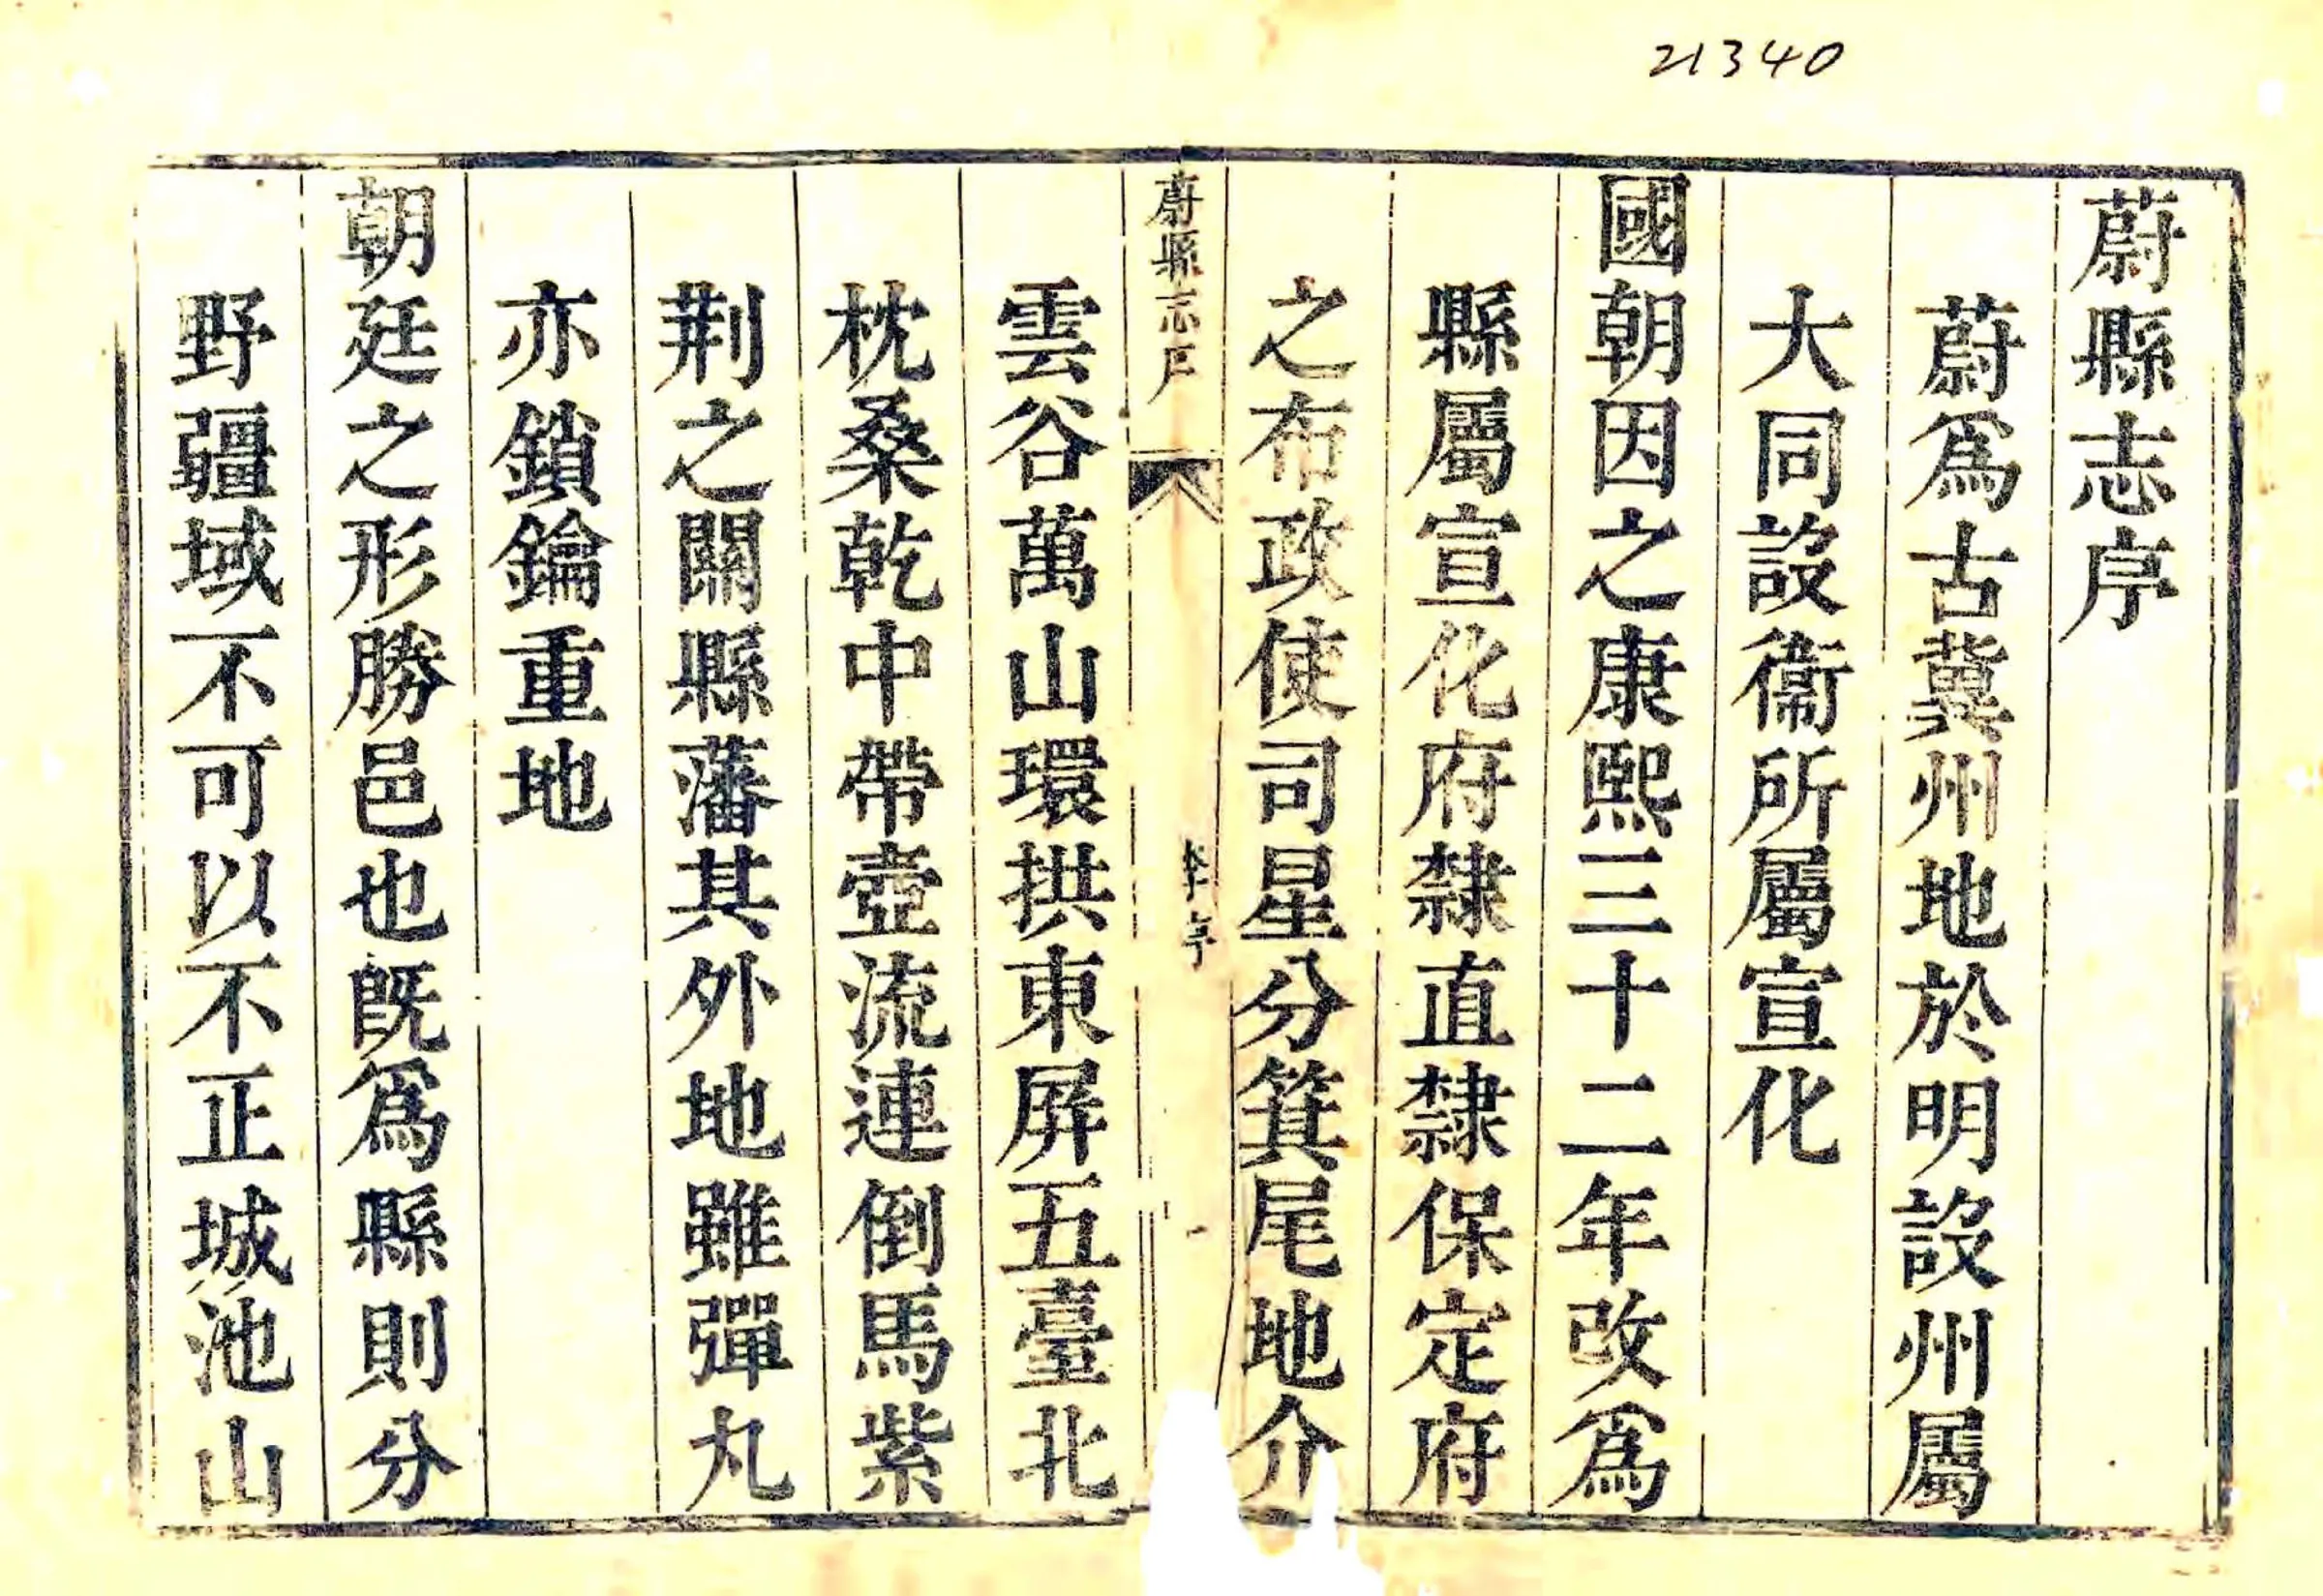 21340
蔚縣志序
蔚爲古冀州地於明設州屬
大同設衞所屬宣化
國朝因之康熙三十二年改爲
縣屬宣化府隸直隸保定府
之布政使司星分箕尾地介
蔚縣志
雲谷萬山環拱東屏五臺北
枕桑乾中帶壺流連倒馬紫
荆之關縣藩其外地雖彈丸
亦鎖鑰重地
朝廷之形勝邑也旣爲縣則分
野疆域不可以不正城池山